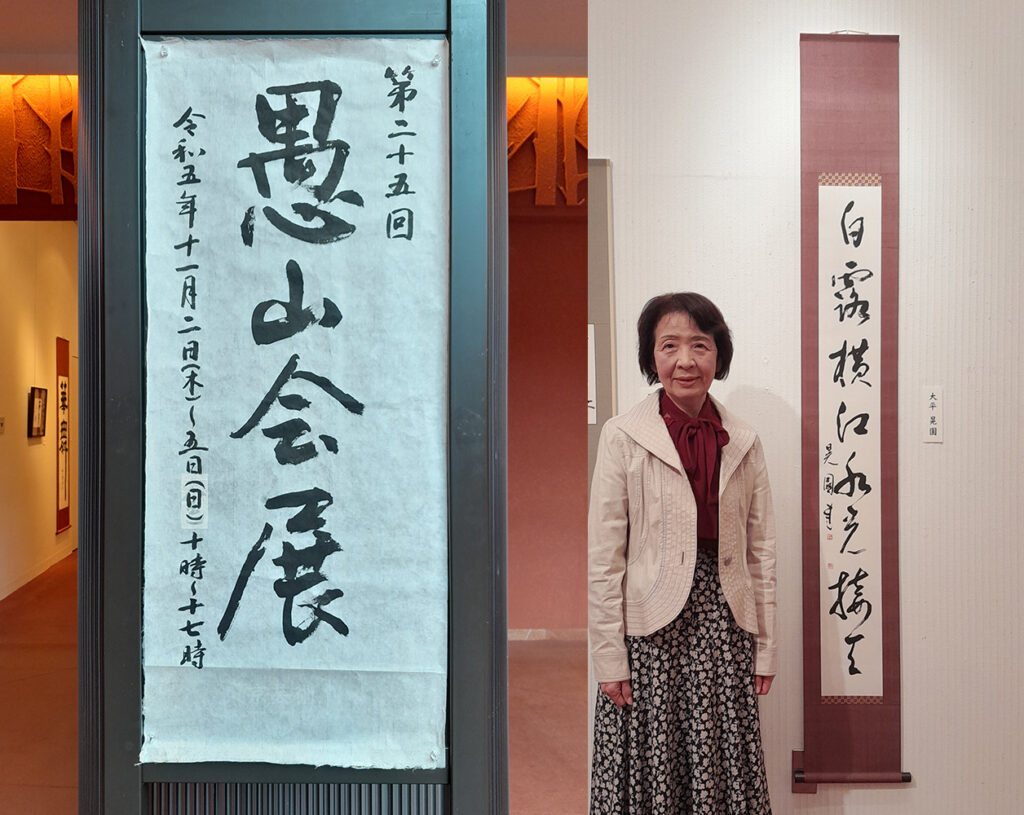 第二十五回
愚山会展
令和五年十一月二日(木)〜五日(日)十時〜十七時
白露横江水光接天
晃園書
大平 晃園